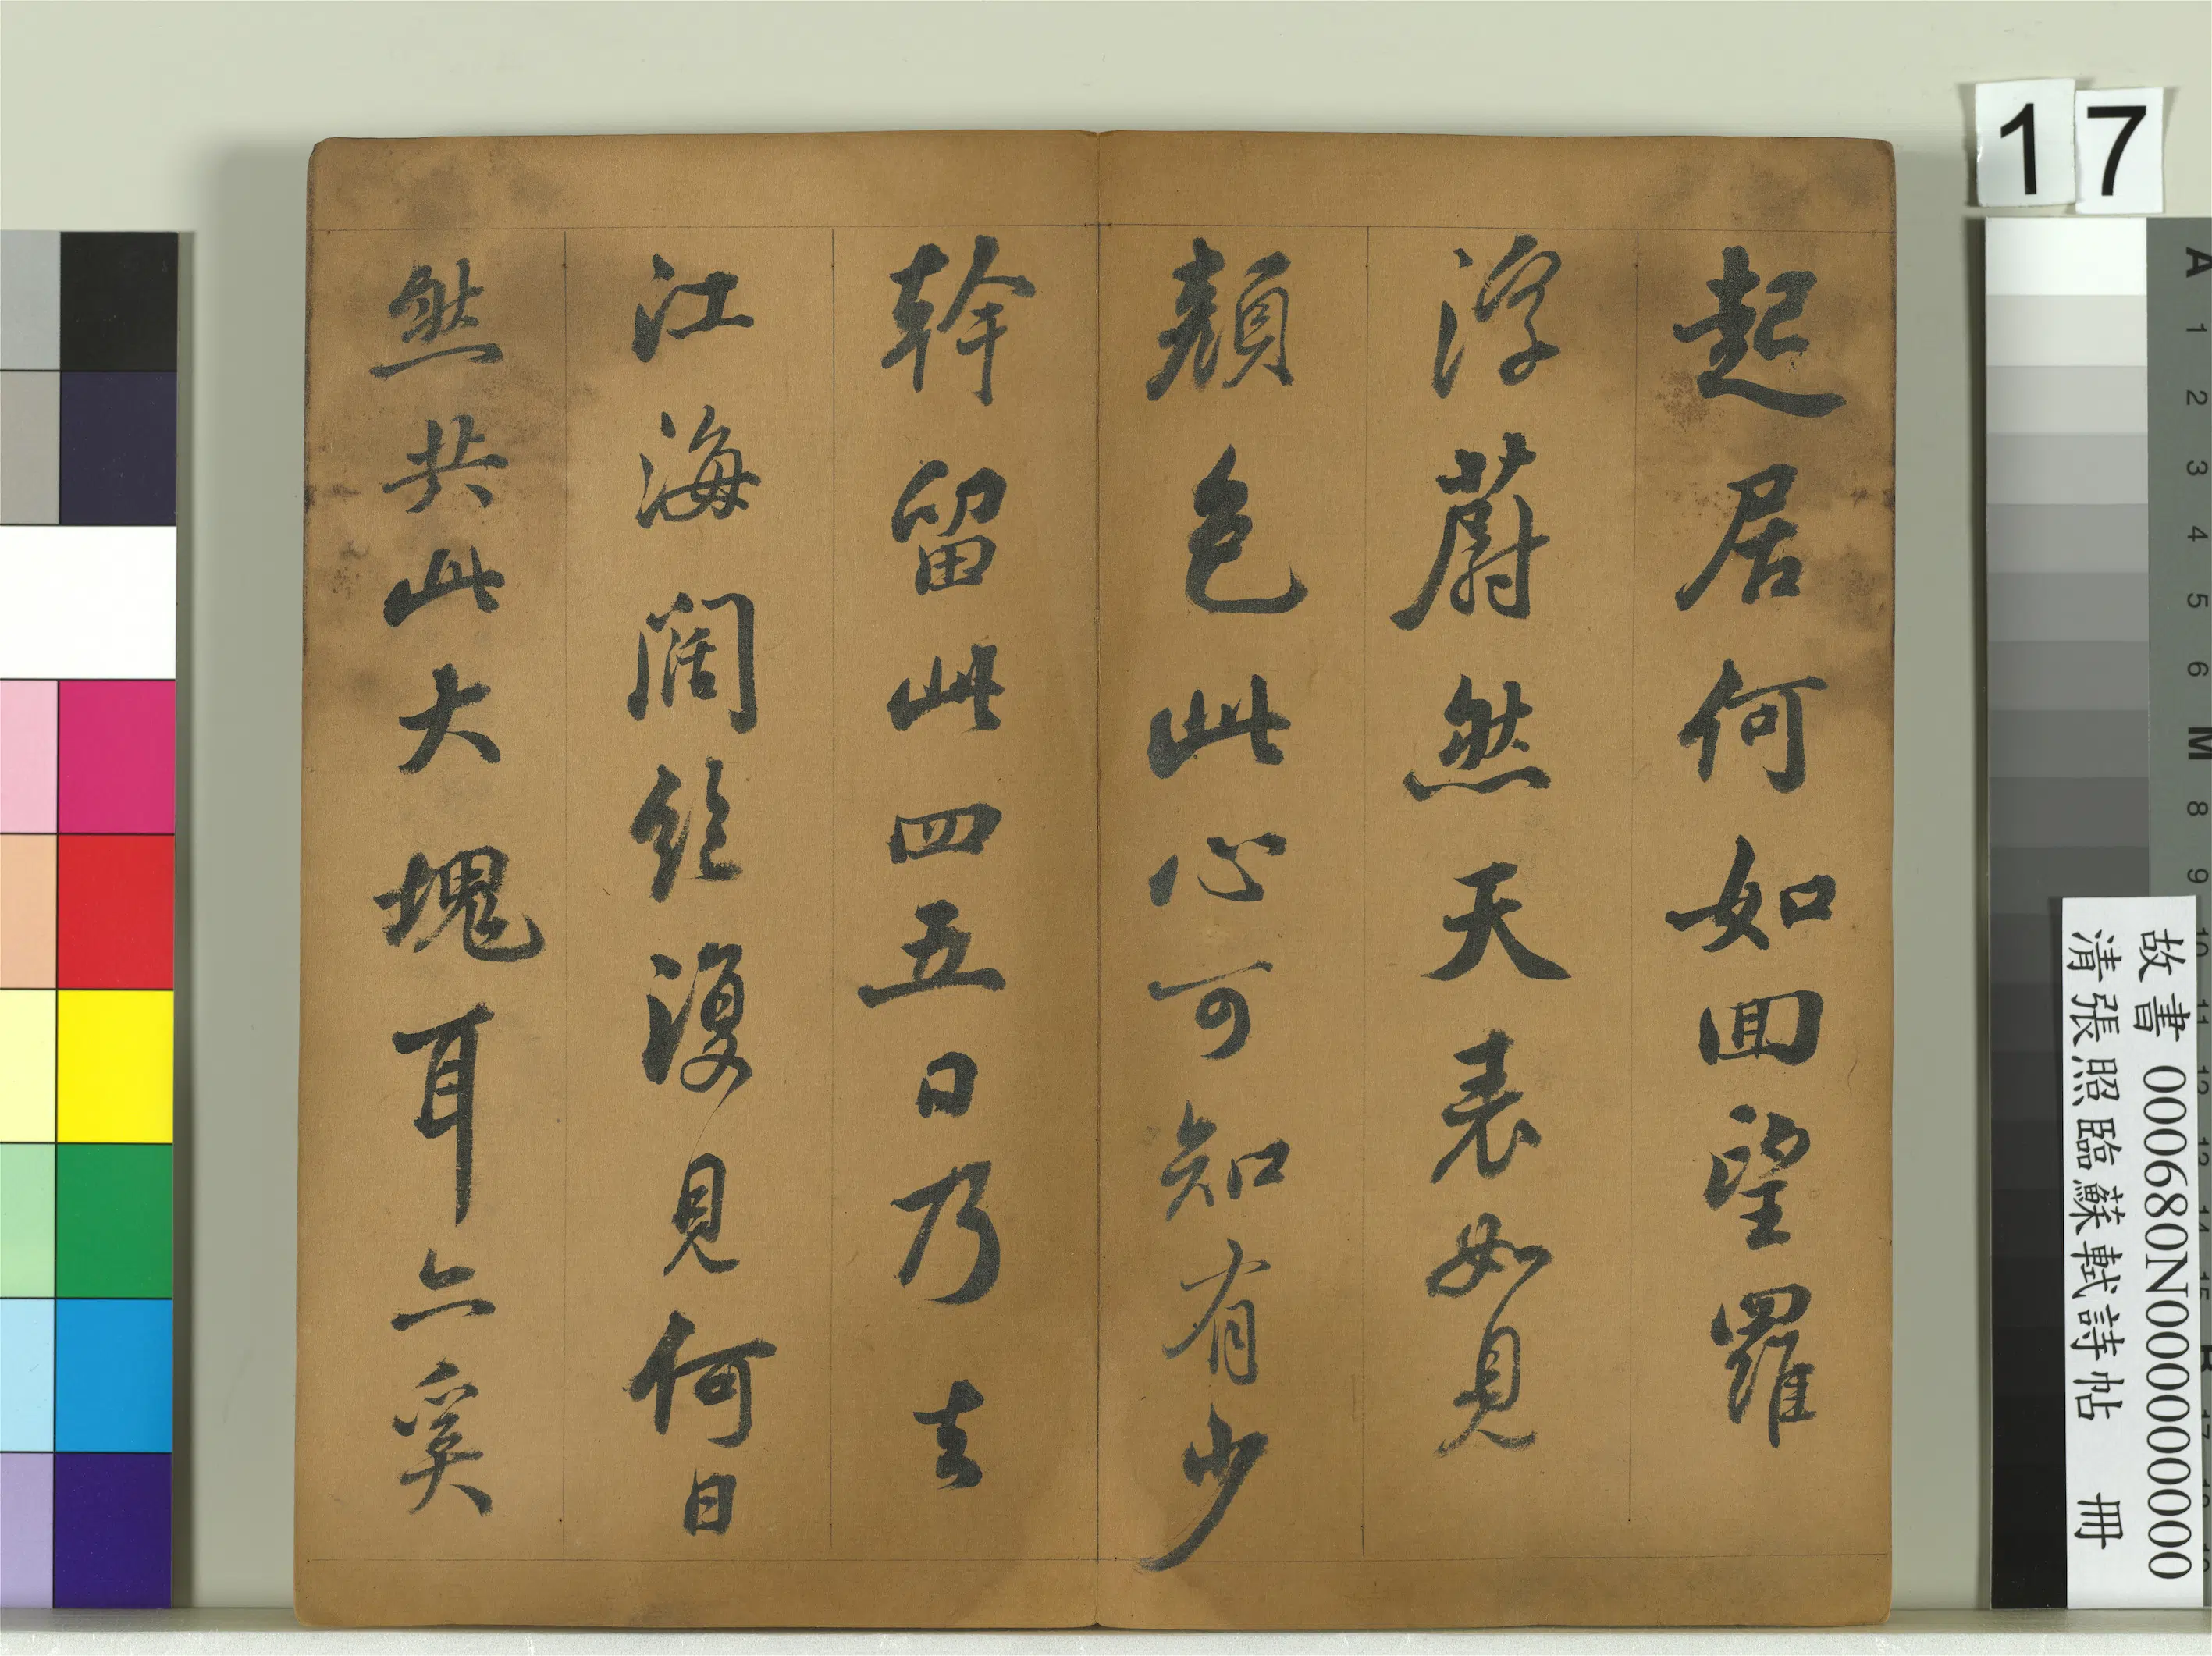 起居何如回望羅
浮蔚然天表如見
顏色此心可知有少
幹留此四五日乃去
江海闊絕復見何日
然共此大塊耳亦奚
17
故書 000680N000000000
清張照臨蘇軾詩帖 冊
A 1 2 3 4 5 6 M 8 9